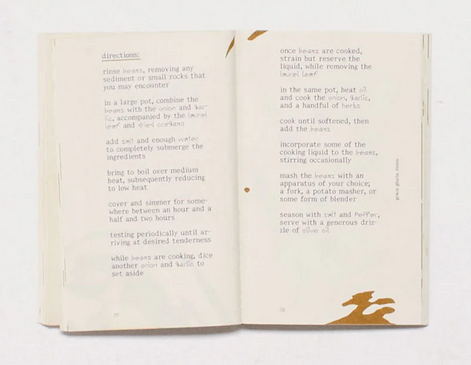 directions:
rinse beans, removing any
sediment or small rocks that
you may encounter
in a large pot, combine the
beans with the onion and gar
lic, accompanied by the laurel
leaf and
add salt and enough water
to completely submerge the
ingredients
bring to boil over medium
heat, subsequently reducing
to low heat
cover and simmer for some-
where between an hour and a
half and two hours
testing periodically until ar-
riving at desired tenderness
while beans are cooking, dice
another onion and garlic to
set aside
once beans are cooked,
strain but reserve the
liquid, while removing the
laurel leaf
in the same pot, heat oil
and cook the onion, garlic,
and a handful of herbs
cook until softened, then
add the beans
incorporate some of the
cooking liquid to the beans,
stirring occasionally
mash the beans with an
apparatus of your choice;
a fork, a potato masher, or
some form of blender
season with salt and pepper,
serve with a generous driz-
zle of olive oil